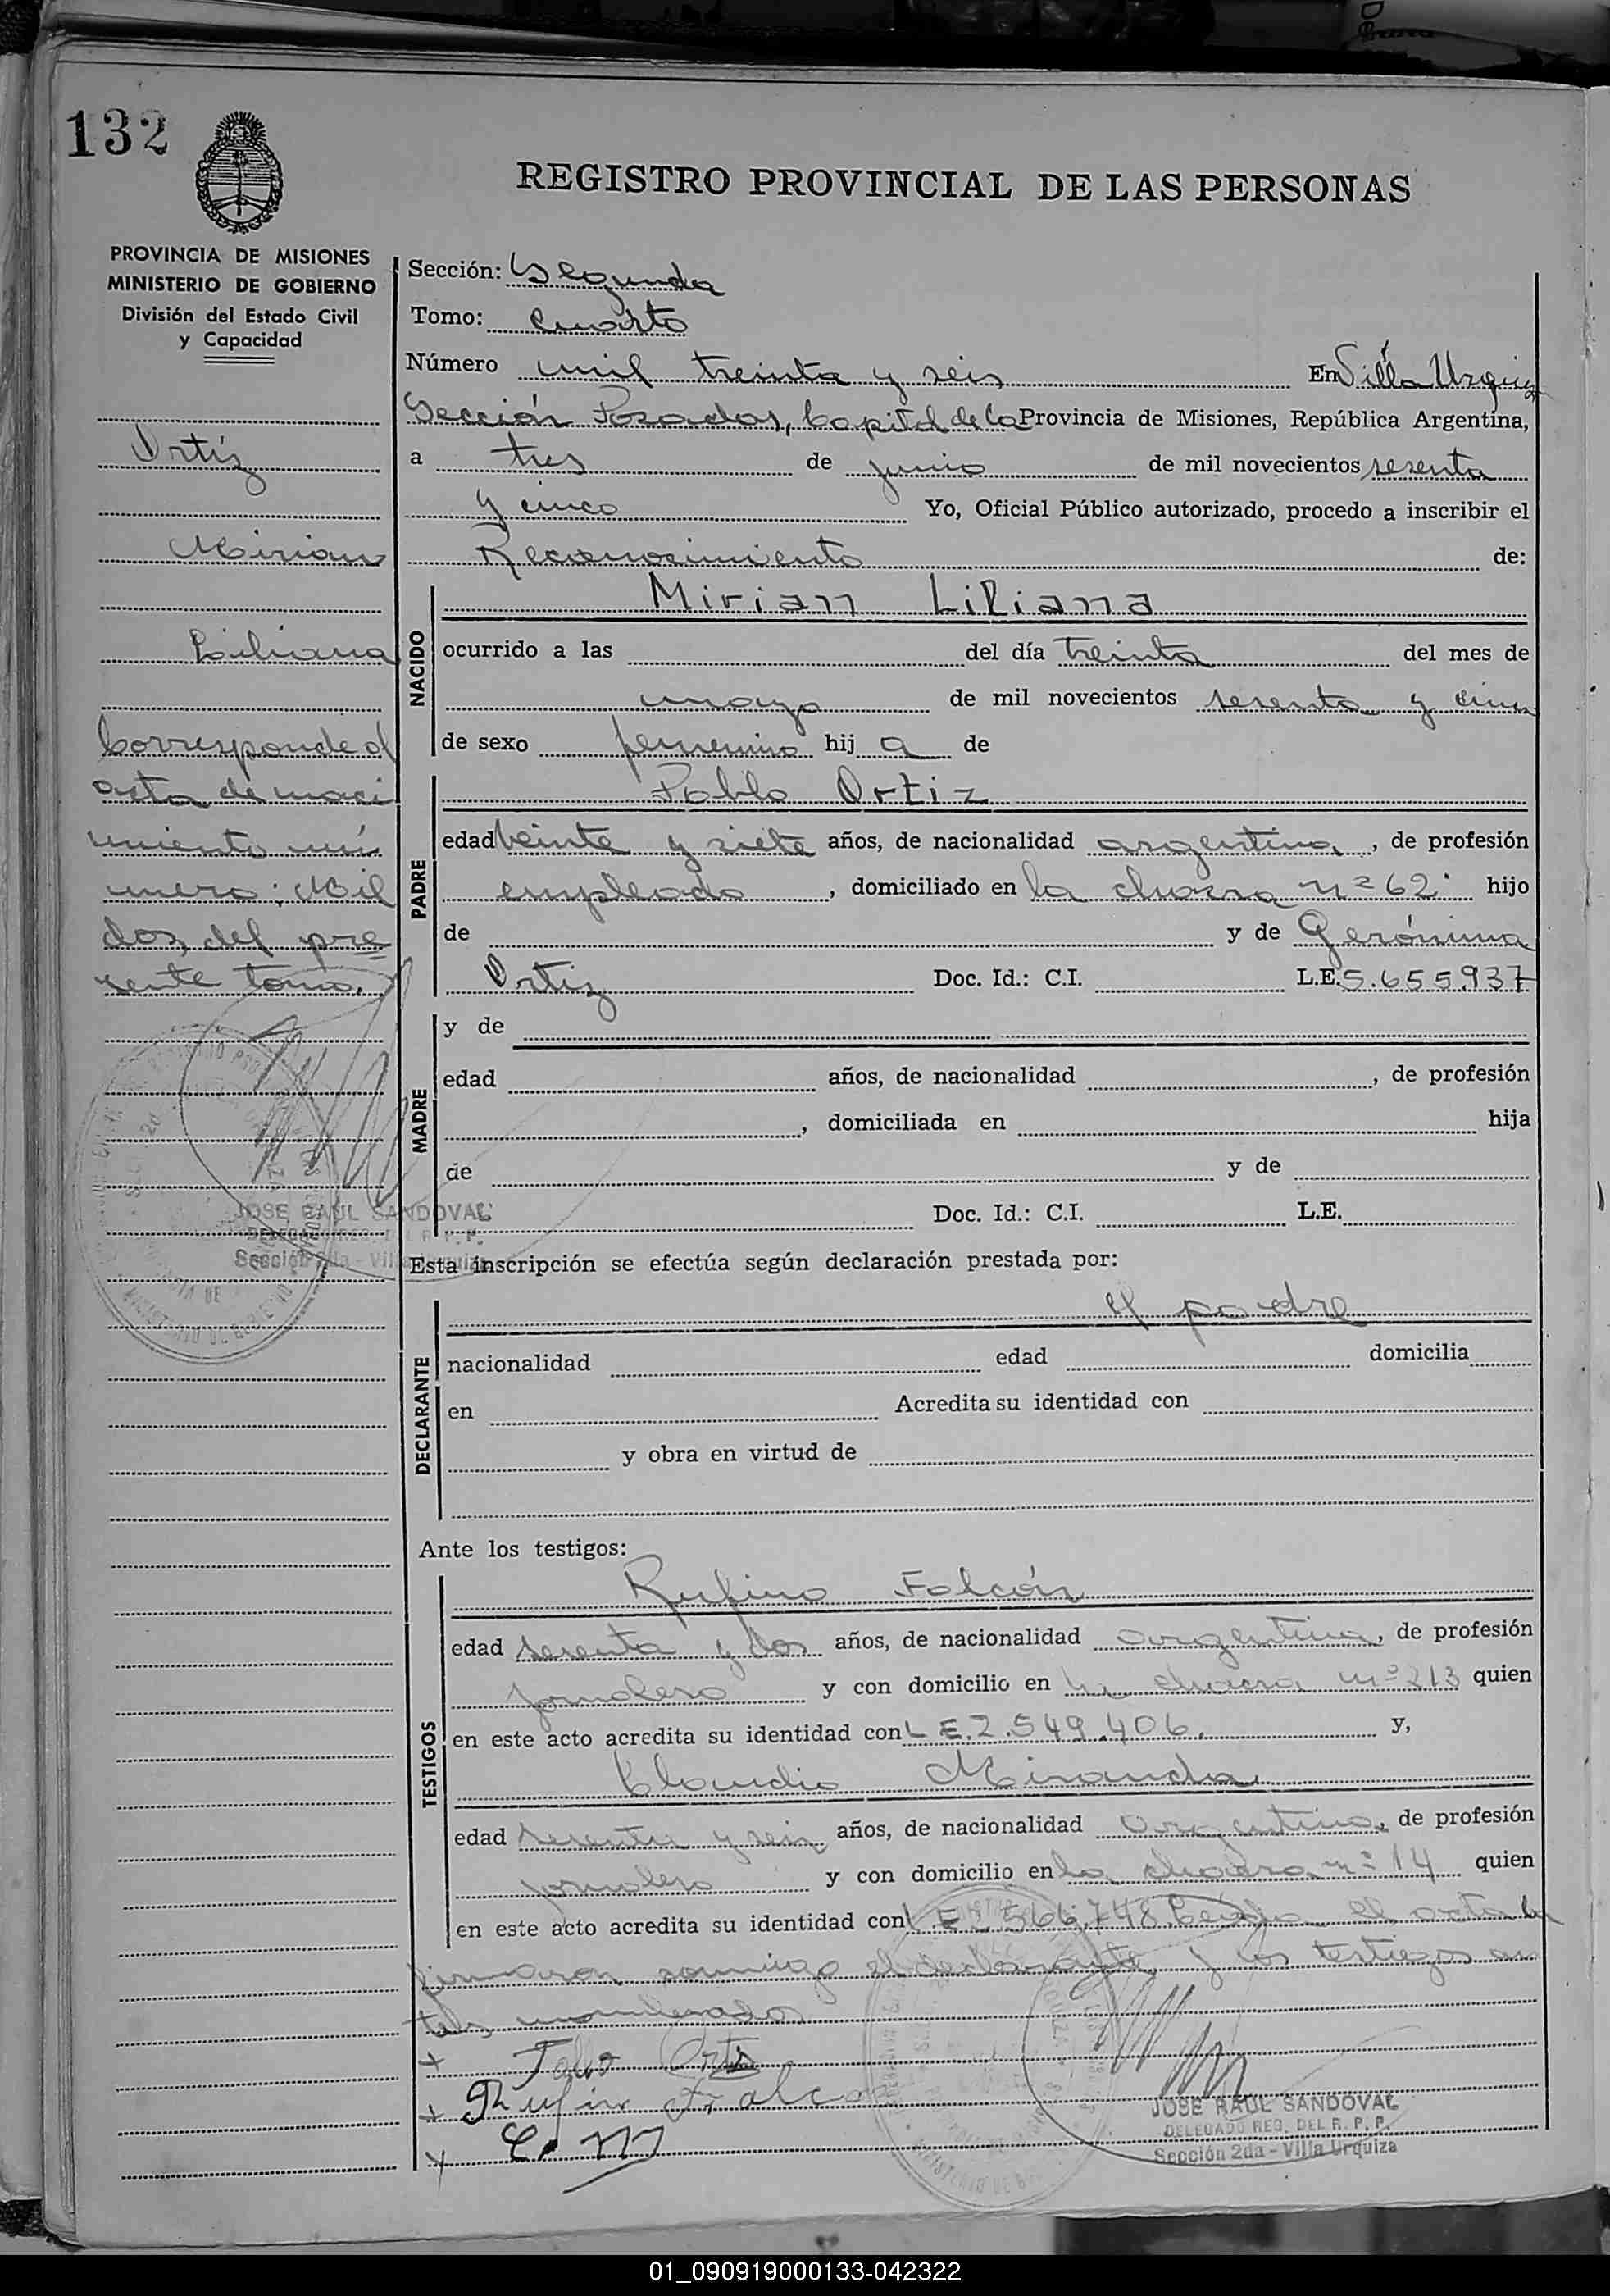 132
REGISTRO PROVINCIAL DE LAS PERSONAS
PROVINCIA DE MISIONES
MINISTERIO DE GOBIERNO
División del Estado Civil
y Capacidad
Ortiz
Mirian
Liliana
Corresponde al
acta de naci
miento nú
mero: Mil
dos, del pre
sente tomo.
JOSE RAUL SANDOVAL
Sección 2da - Villa Urquiza
Sección: Segunda
Tomo: Cuarto
Número mil treinta y seis En Villa Urquiza
Sección Posadas, Capital de la Provincia de Misiones, República Argentina,
a tres de junio de mil novecientos sesenta
y cinco Yo, Oficial Público autorizado, procedo a inscribir el
Reconocimiento de:
NACIDO
Mirian Liliana
ocurrido a las del día treinta del mes de
mayo de mil novecientos sesenta y cinco
de sexo femenino hij a de
PADRE
Pablo Ortiz
edad veinte y siete años, de nacionalidad argentina, de profesión
empleado, domiciliado en la chacra nº 62. hijo
de y de Gerónima
Ortiz Doc. Id.: C.I. L.E. 5.655.937
MADRE
y de
edad años, de nacionalidad , de profesión
, domiciliada en hija
de y de
Doc. Id.: C.I. L.E.
Esta inscripción se efectúa según declaración prestada por:
DECLARANTE
el padre
nacionalidad edad domicilia
en Acredita su identidad con
y obra en virtud de
Ante los testigos:
TESTIGOS
Rufino Falcón
edad sesenta y dos años, de nacionalidad argentina, de profesión
jornalero y con domicilio en la chacra nº 213 quien
en este acto acredita su identidad con L E. 2.549.406. y,
Claudio Miranda
edad sesenta y seis años, de nacionalidad argentina, de profesión
jornalero y con domicilio en la chacra nº 14 quien
en este acto acredita su identidad con L.E. 566.748. Leída el acta la
firmaron conmigo el declarante y los testigos an
tes nombrados
+ Pablo Ortiz
+ Rufino Falco
+ C. M
JOSE RAUL SANDOVAL
DELEGADO REG. DEL R. P. P.
Sección 2da - Villa Urquiza
01_090919000133-042322